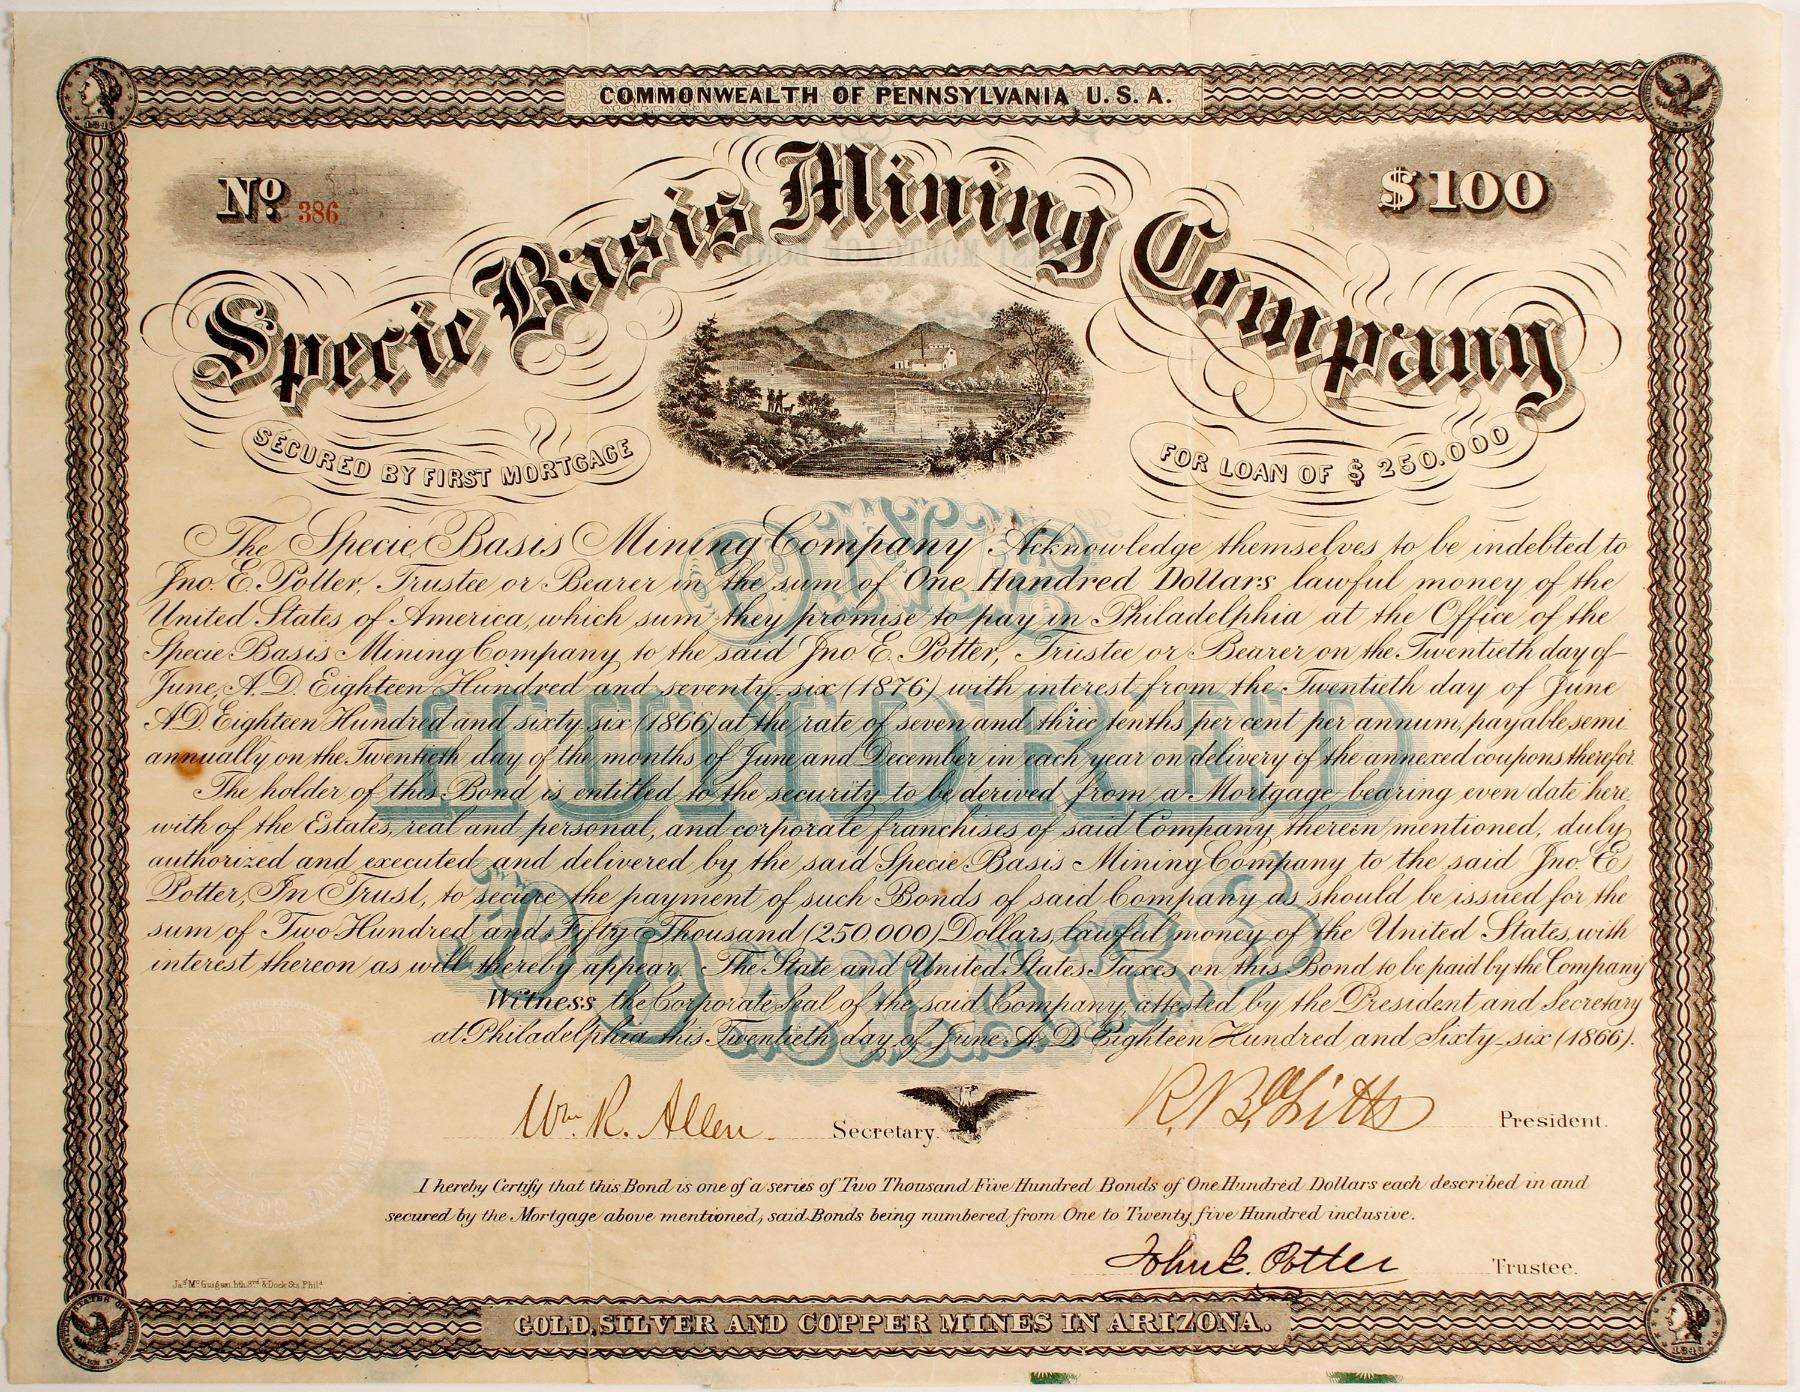 COMMONWEALTH OF PENNSYLVANIA U.S.A.
No. 386
$100
Specie Basis Mining Company
SECURED BY FIRST MORTGAGE
FOR LOAN OF $ 250.000
ONE HUNDRED DOLLARS
The Specie Basis Mining Company Acknowledge themselves to be indebted to
Jno. E. Potter, Trustee or Bearer in the sum of One Hundred Dollars lawful money of the
United States of America, which sum they promise to pay in Philadelphia at the Office of the
Specie Basis Mining Company to the said Jno. E. Potter, Trustee or Bearer on the Twentieth day of
June, A.D. Eighteen Hundred and seventy-six (1876) with interest from the Twentieth day of June
A.D. Eighteen Hundred and sixty-six (1866) at the rate of seven and three tenths per cent per annum, payable semi
annually on the Twentieth day of the months of June and December in each year on delivery of the annexed coupons therefor.
The holder of this Bond is entitled to the security to be derived from a Mortgage bearing even date here
with of the Estates, real and personal, and corporate franchises of said Company therein mentioned, duly
authorized and executed and delivered by the said Specie Basis Mining Company to the said Jno. E.
Potter, In Trust, to secure the payment of such Bonds of said Company as should be issued for the
sum of Two Hundred and Fifty Thousand (250.000) Dollars, lawful money of the United States, with
interest thereon as will thereby appear. The State and United States Taxes on this Bond to be paid by the Company
Witness the Corporate Seal of the said Company, attested by the President and Secretary
at Philadelphia this Twentieth day of June A.D. Eighteen Hundred and Sixty-six (1866).
Wm. R. Allen Secretary. President.
I hereby Certify that this Bond is one of a series of Two Thousand Five Hundred Bonds of One Hundred Dollars each described in and
secured by the Mortgage above mentioned, said Bonds being numbered from One to Twenty five Hundred inclusive.
John E. Potter Trustee.
Jas. McGuigan, lith. 3rd. & Dock Sts. Phila.
GOLD, SILVER AND COPPER MINES IN ARIZONA.